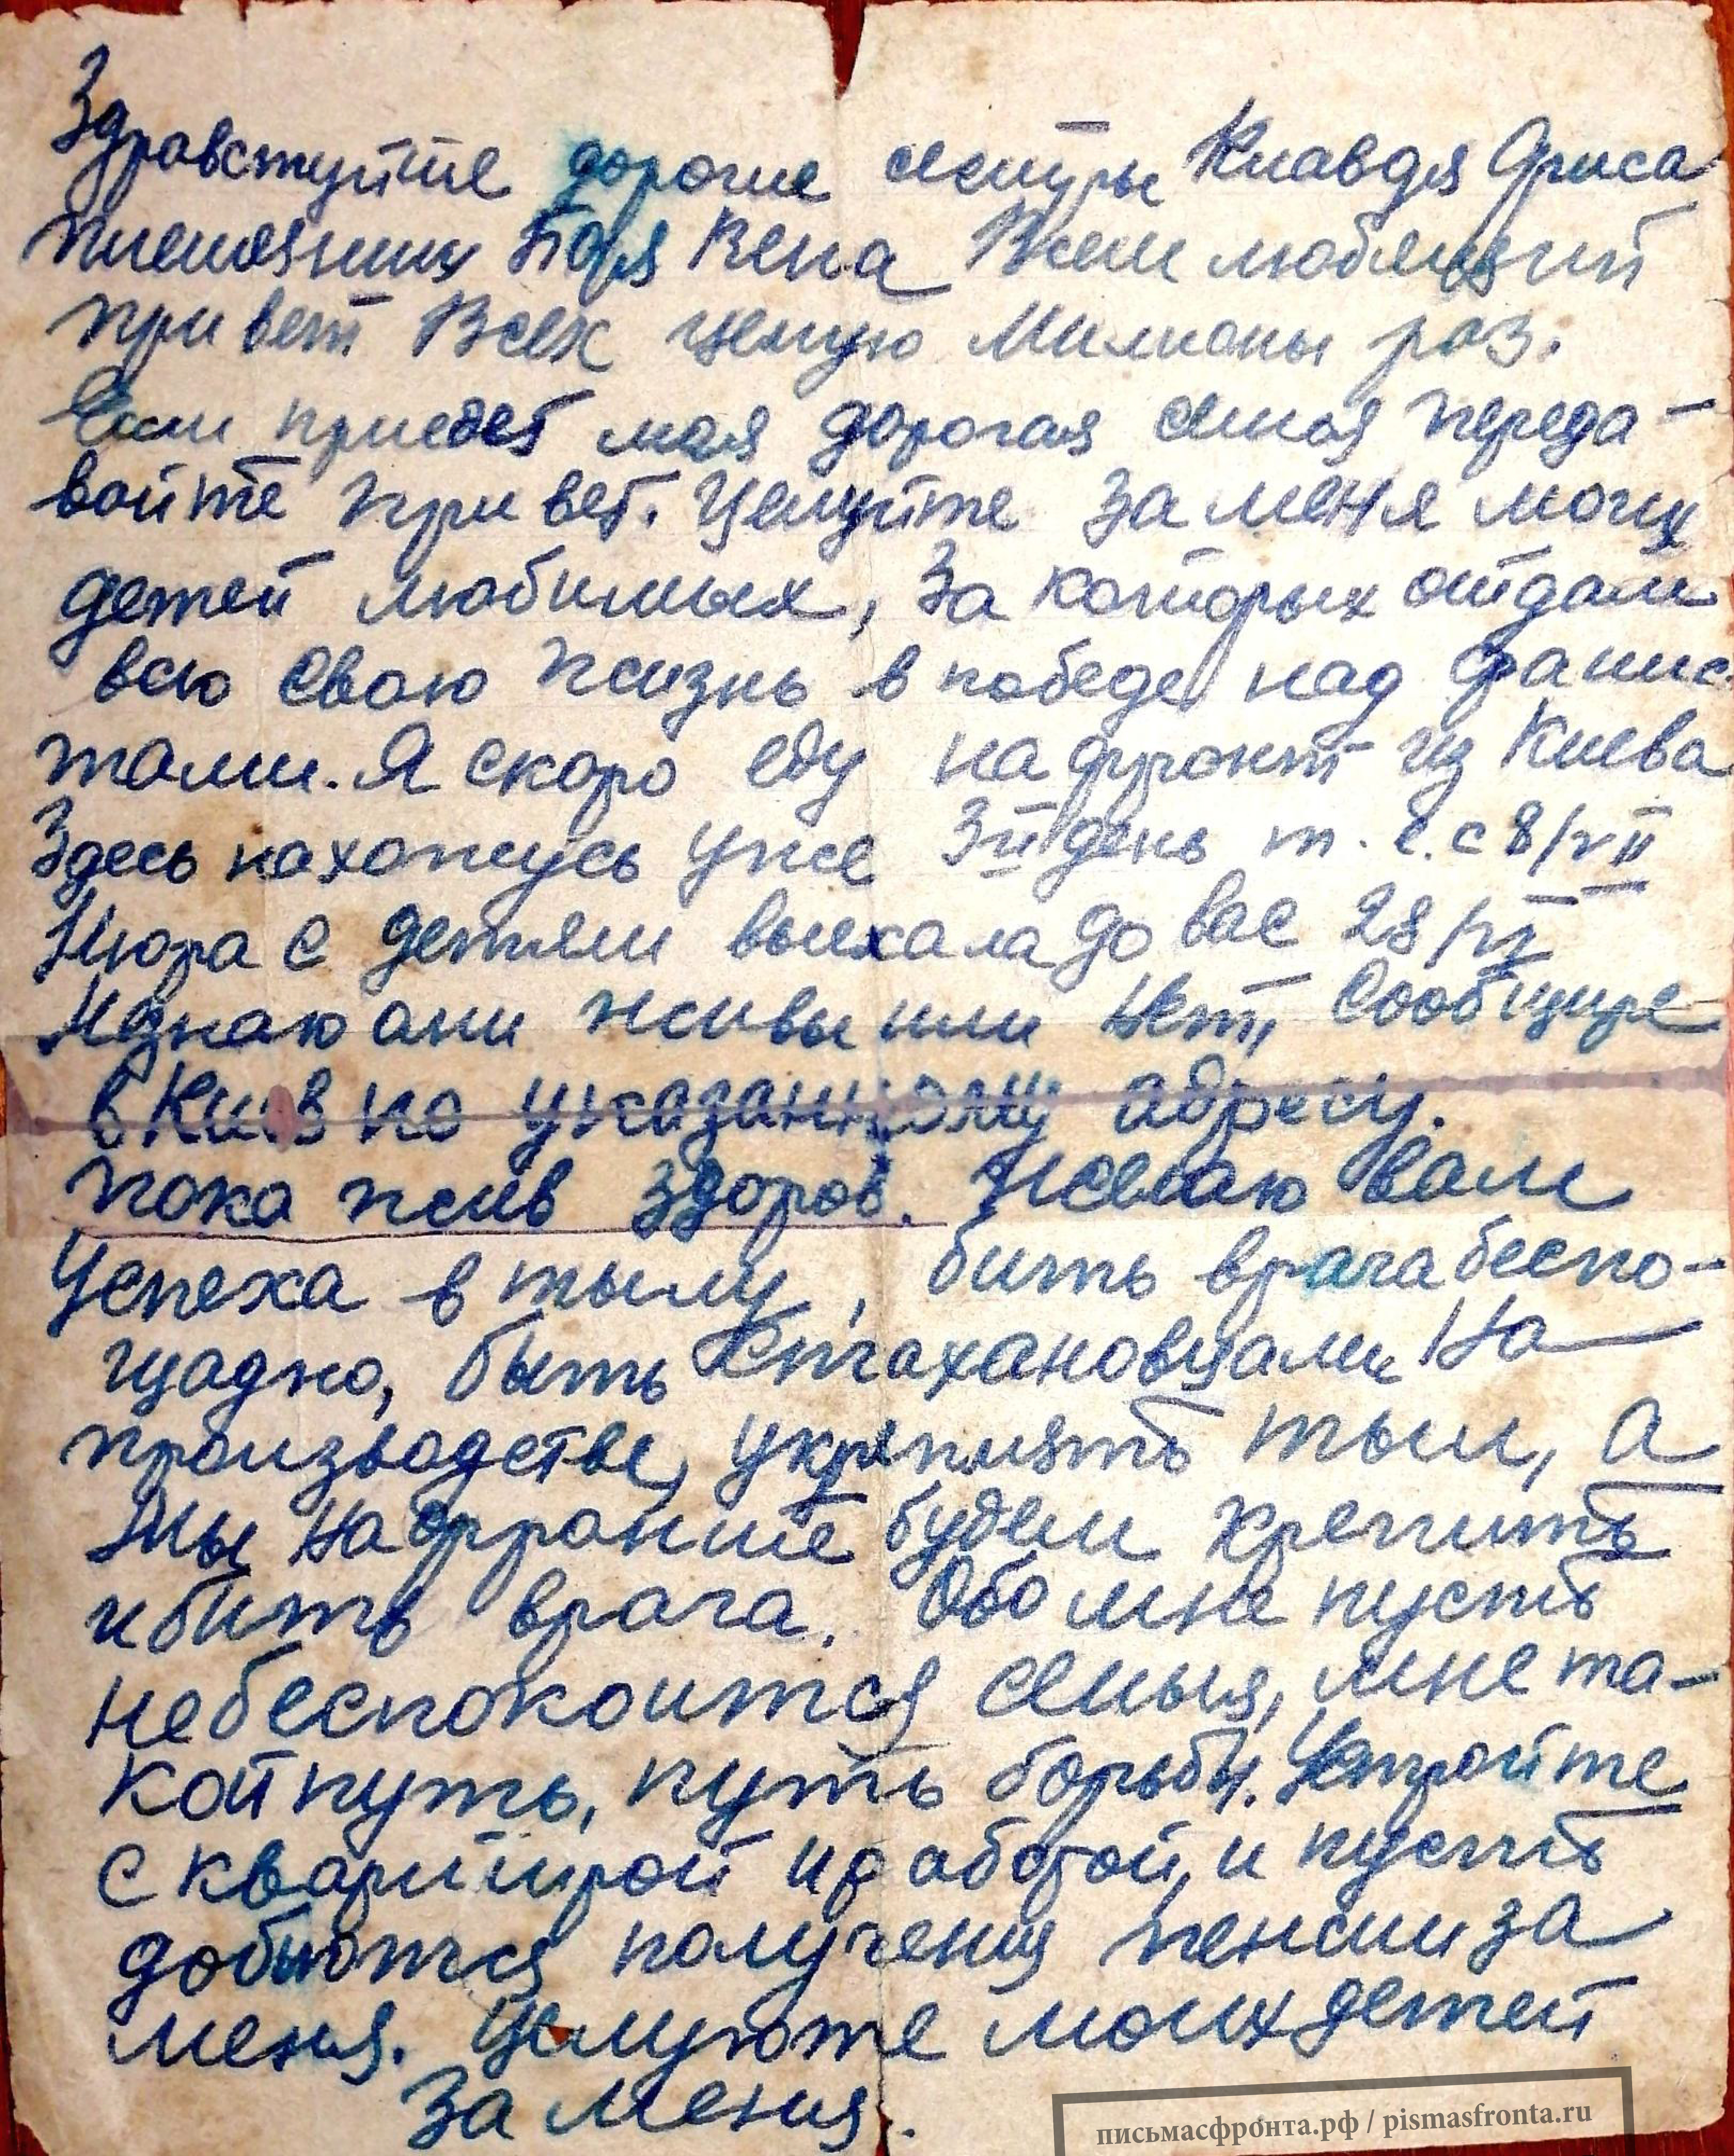 Здравствуйте дорогие сестры Клавдя Орися
племяник Боря Вена Всем любящий
привет Всех целую Милионы раз.
Если приедет моя дорогая семья переда-
вайте привет. Целуйте за меня моих
детей любимых, за которых отдам
всю свою жизнь в победе над фашис
тами. Я скоро еду на фронт из Киева
Здесь нахожусь уже 3й день т. е. с 8/VII
Нюра с детями выехала до вас 28/VI
Незнаю они живы или нет, Сообщите
в Киев по указанному адресу.
пока жив здоров. Желаю вам
Успеха в тылу, бить врага беспо-
щадно, быть Стахановцами На
производстве, укреплять тыл, а
Мы на фронте будем крепить
и бить врага. Обо мне пусть
небеспокоится семья, мне та-
кой путь, путь борьбы. Устройте
с квартирой и работой, и пусть
добьются получения пенсии за
меня. Целуюте моих детей
за меня.
письмасфронта.рф / pismasfronta.ru